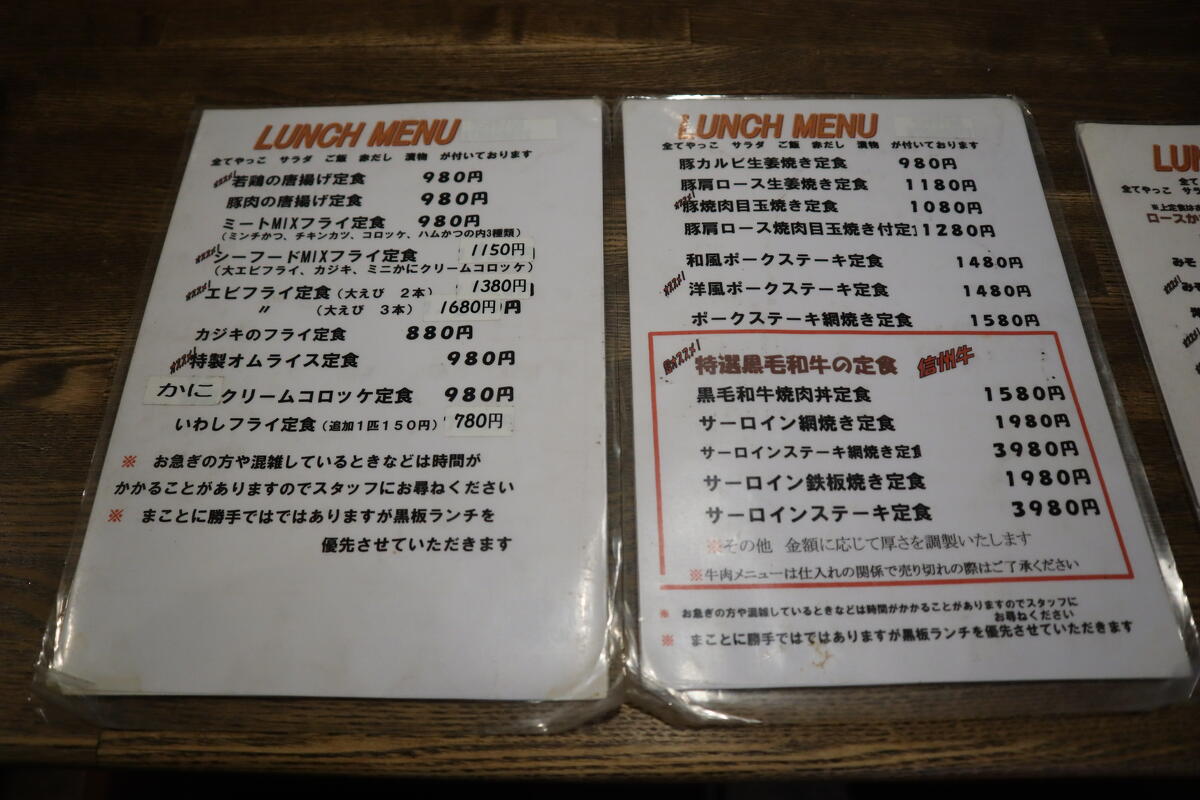 LUNCH MENU
全てやっこ サラダ ご飯 赤だし 漬物 が付いております
オススメ!
若鶏の唐揚げ定食 980円
豚肉の唐揚げ定食 980円
ミートMIXフライ定食 980円
(ミンチかつ、チキンカツ、コロッケ、ハムかつの内3種類)
オススメ!
シーフードMIXフライ定食 1150円
(大エビフライ、カジキ、ミニかにクリームコロッケ)
オススメ!
エビフライ定食(大えび 2本) 1380円
〃 (大えび 3本) 1680円 円
カジキのフライ定食 880円
オススメ!
特製オムライス定食 980円
かに クリームコロッケ定食 980円
いわしフライ定食(追加1匹150円) 780円
※ お急ぎの方や混雑しているときなどは時間が
かかることがありますのでスタッフにお尋ねください
※ まことに勝手ではではありますが黒板ランチを
優先させていただきます
LUNCH MENU
全てやっこ サラダ ご飯 赤だし 漬物 が付いております
豚カルビ生姜焼き定食 980円
豚肩ロース生姜焼き定食 1180円
オススメ!
豚焼肉目玉焼き定食 1080円
豚肩ロース焼肉目玉焼き付定 1280円
和風ポークステーキ定食 1480円
オススメ!
洋風ポークステーキ定食 1480円
ポークステーキ網焼き定食 1580円
オススメ!
特選黒毛和牛の定食 信州牛
黒毛和牛焼肉丼定食 1580円
サーロイン網焼き定食 1980円
サーロインステーキ網焼き定 3980円
サーロイン鉄板焼き定食 1980円
サーロインステーキ定食 3980円
※その他 金額に応じて厚さを調製いたします
※牛肉メニューは仕入れの関係で売り切れの際はご了承ください
※ お急ぎの方や混雑しているときなどは時間がかかることがありますのでスタッフに
お尋ねください
※ まことに勝手ではではありますが黒板ランチを優先させていただきます
LUN
全て
全てやっこ サラ
※上定食はお
ロースか
みそ
みそ